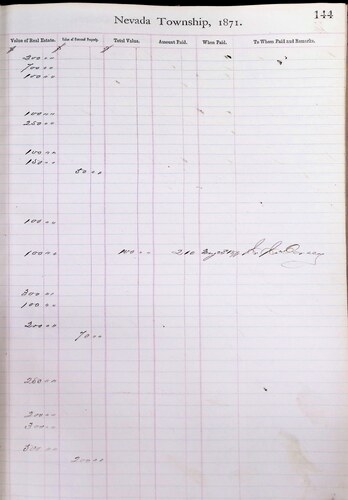 144
Nevada Township, 1871.
Value of Real Estate. Value of Personal Property. Total Value. Amount Paid. When Paid. To Whom Paid and Remarks.
$ $ $
200 00
700 00
100 00
100 00
250 00
100 00
150 00
50 00
100 00
100 00 100 00 2 10
300 00
100 00
200 00
70 00
260 00
200 00
300 00
300 00
200 00